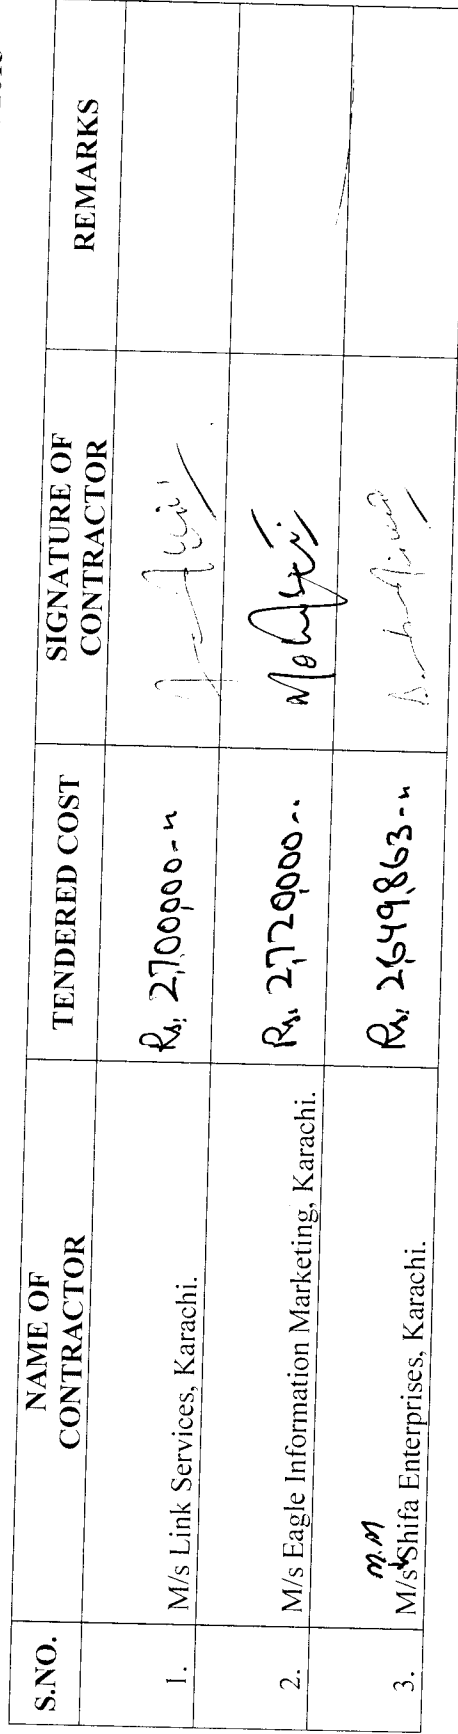 S.NO. NAME OF CONTRACTOR TENDERED COST SIGNATURE OF CONTRACTOR REMARKS
1. M/s Link Services, Karachi. Rs. 2,700,000--
2. M/s Eagle Information Marketing, Karachi. Rs. 2,720,000--
M.M
3. M/s Shifa Enterprises, Karachi. Rs. 2,649,863--